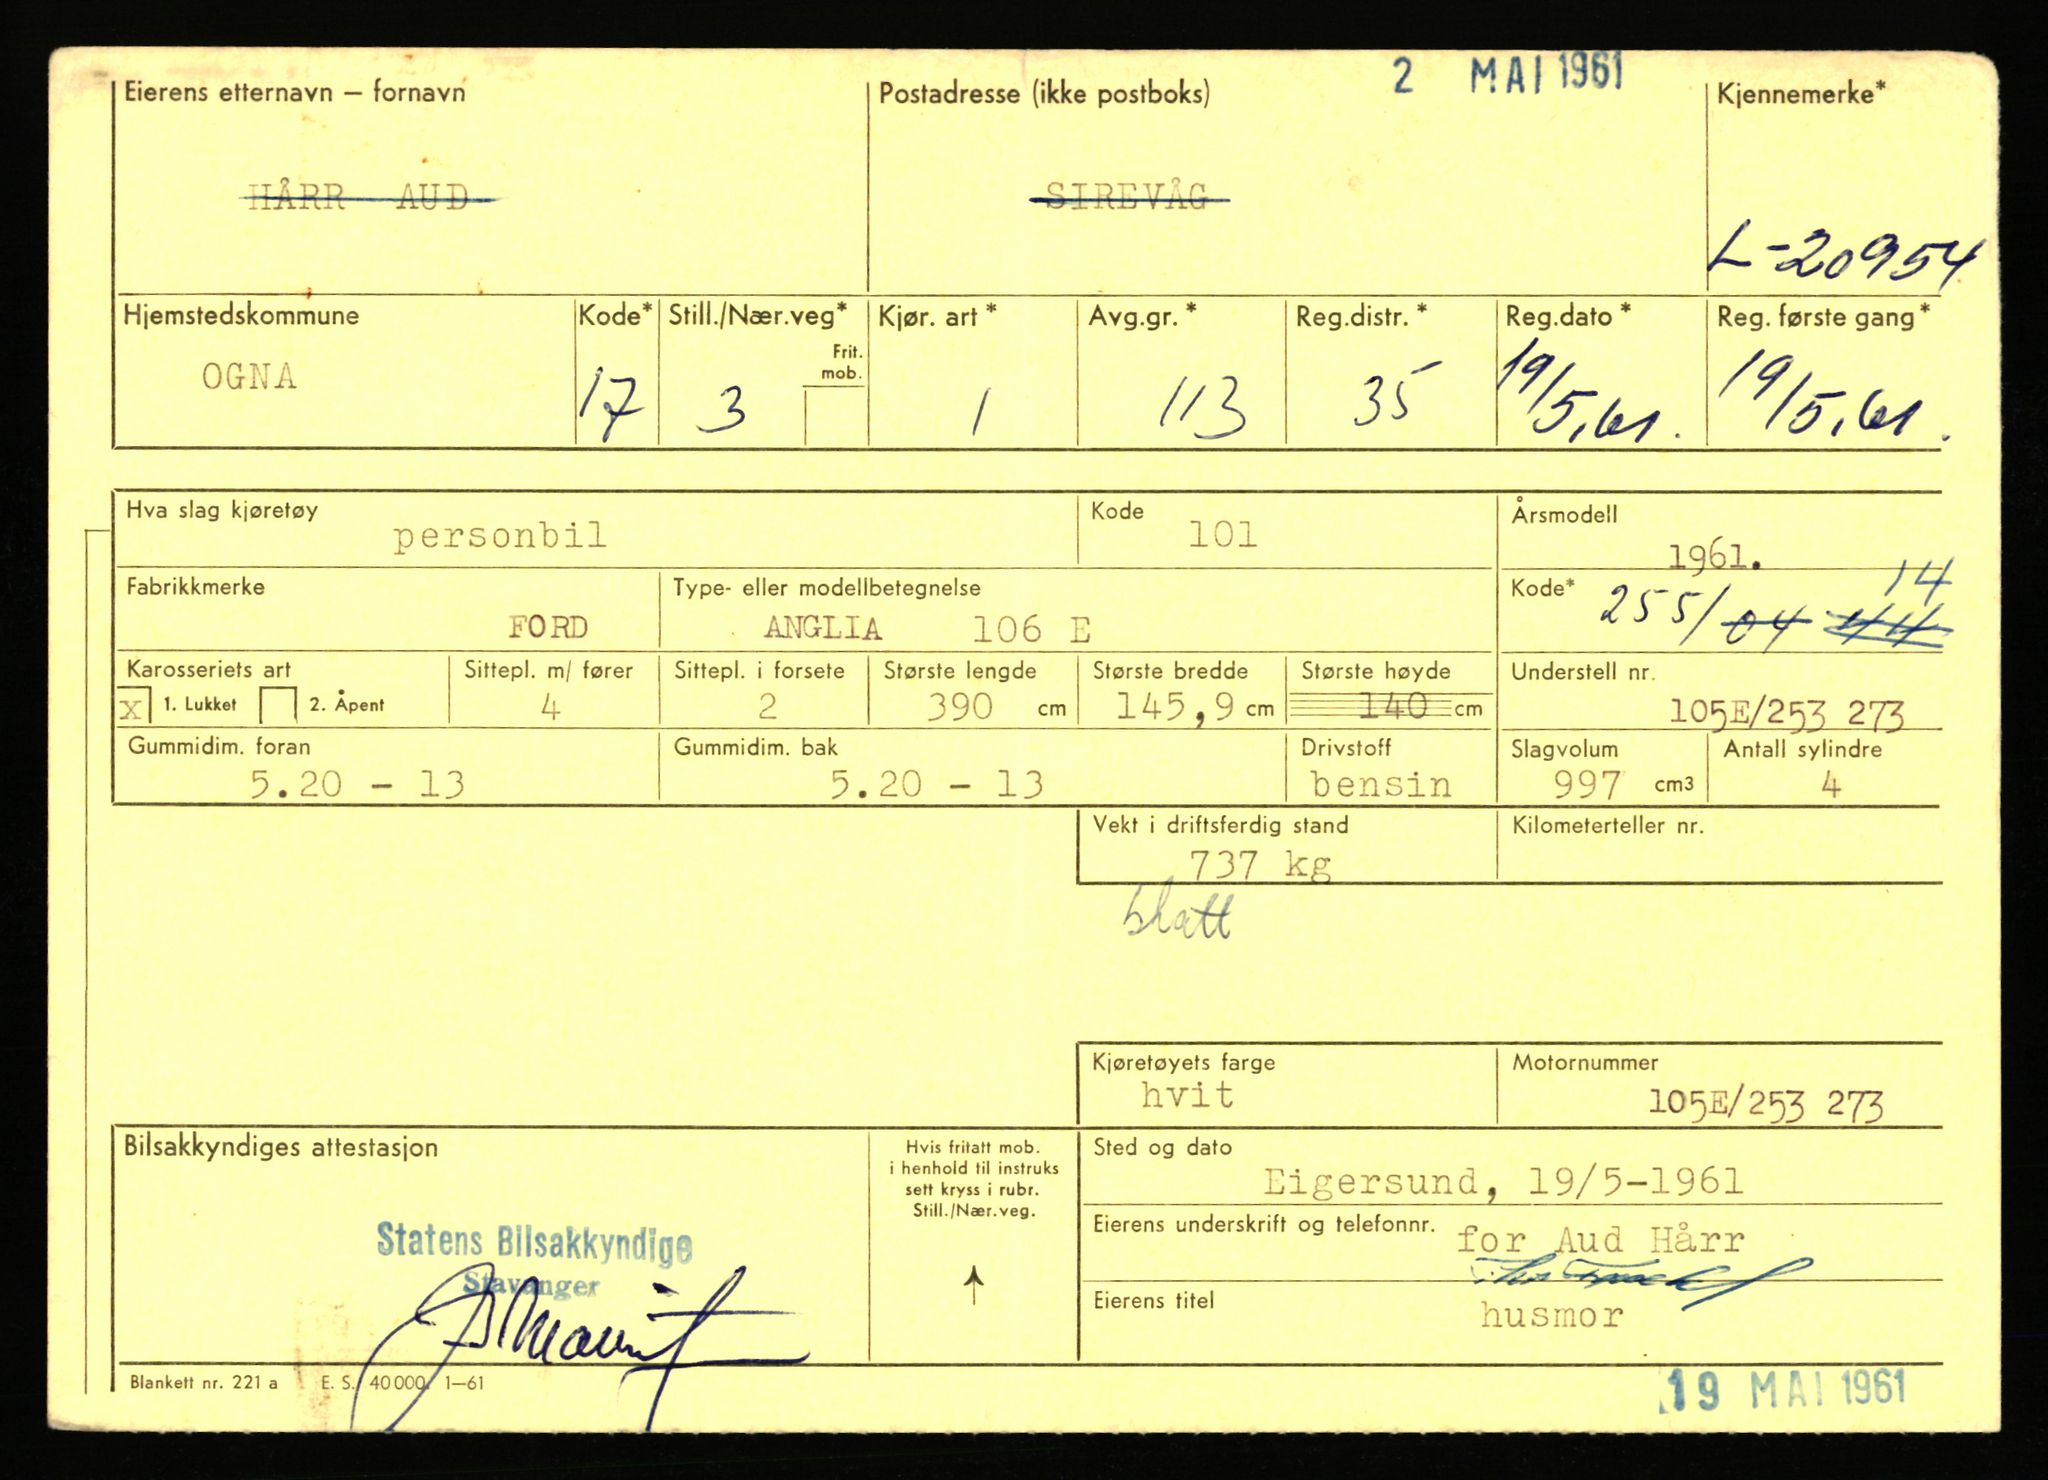 2 MAI 1961
Eierens etternavn – fornavn
Postadresse (ikke postboks)
Kjennemerke*
HÅRR AUD
SIREVÅG
L-20954
Hjemstedskommune
Kode*
Still./Nær.veg*
Kjør. art*
Avg.gr.*
Reg.distr.*
Reg.dato*
Reg. første gang*
Frit.
mob.
OGNA
17
3
1
113
35
19/5.61.
19/5.61.
Hva slag kjøretøy
personbil
Kode
101
Årsmodell
1961.
Fabrikkmerke
FORD
Type- eller modellbetegnelse
ANGLIA 106 E
Kode*
14
255/04 44
Karosseriets art
x 1. Lukket 2. Åpent
Sittepl. m/ fører
4
Sittepl. i forsete
2
Største lengde
390 cm
Største bredde
145,9 cm
Største høyde
140 cm
Understell nr.
105E/253 273
Gummidim. foran
5.20 - 13
Gummidim. bak
5.20 - 13
Drivstoff
bensin
Slagvolum
997 cm3
Antall sylindre
4
Vekt i driftsferdig stand
737 kg
Kilometerteller nr.
blatt
Kjøretøyets farge
hvit
Motornummer
105E/253 273
Bilsakkyndiges attestasjon
Statens Bilsakkyndige
Stavanger
Hvis fritatt mob.
i henhold til instruks
sett kryss i rubr.
Still./Nær.veg.
Sted og dato
Eigersund, 19/5-1961
Eierens underskrift og telefonnr.
for Aud Hårr
Eierens titel
husmor
Blankett nr. 221 a E. S. 40 000. 1—61
19 MAI 1961